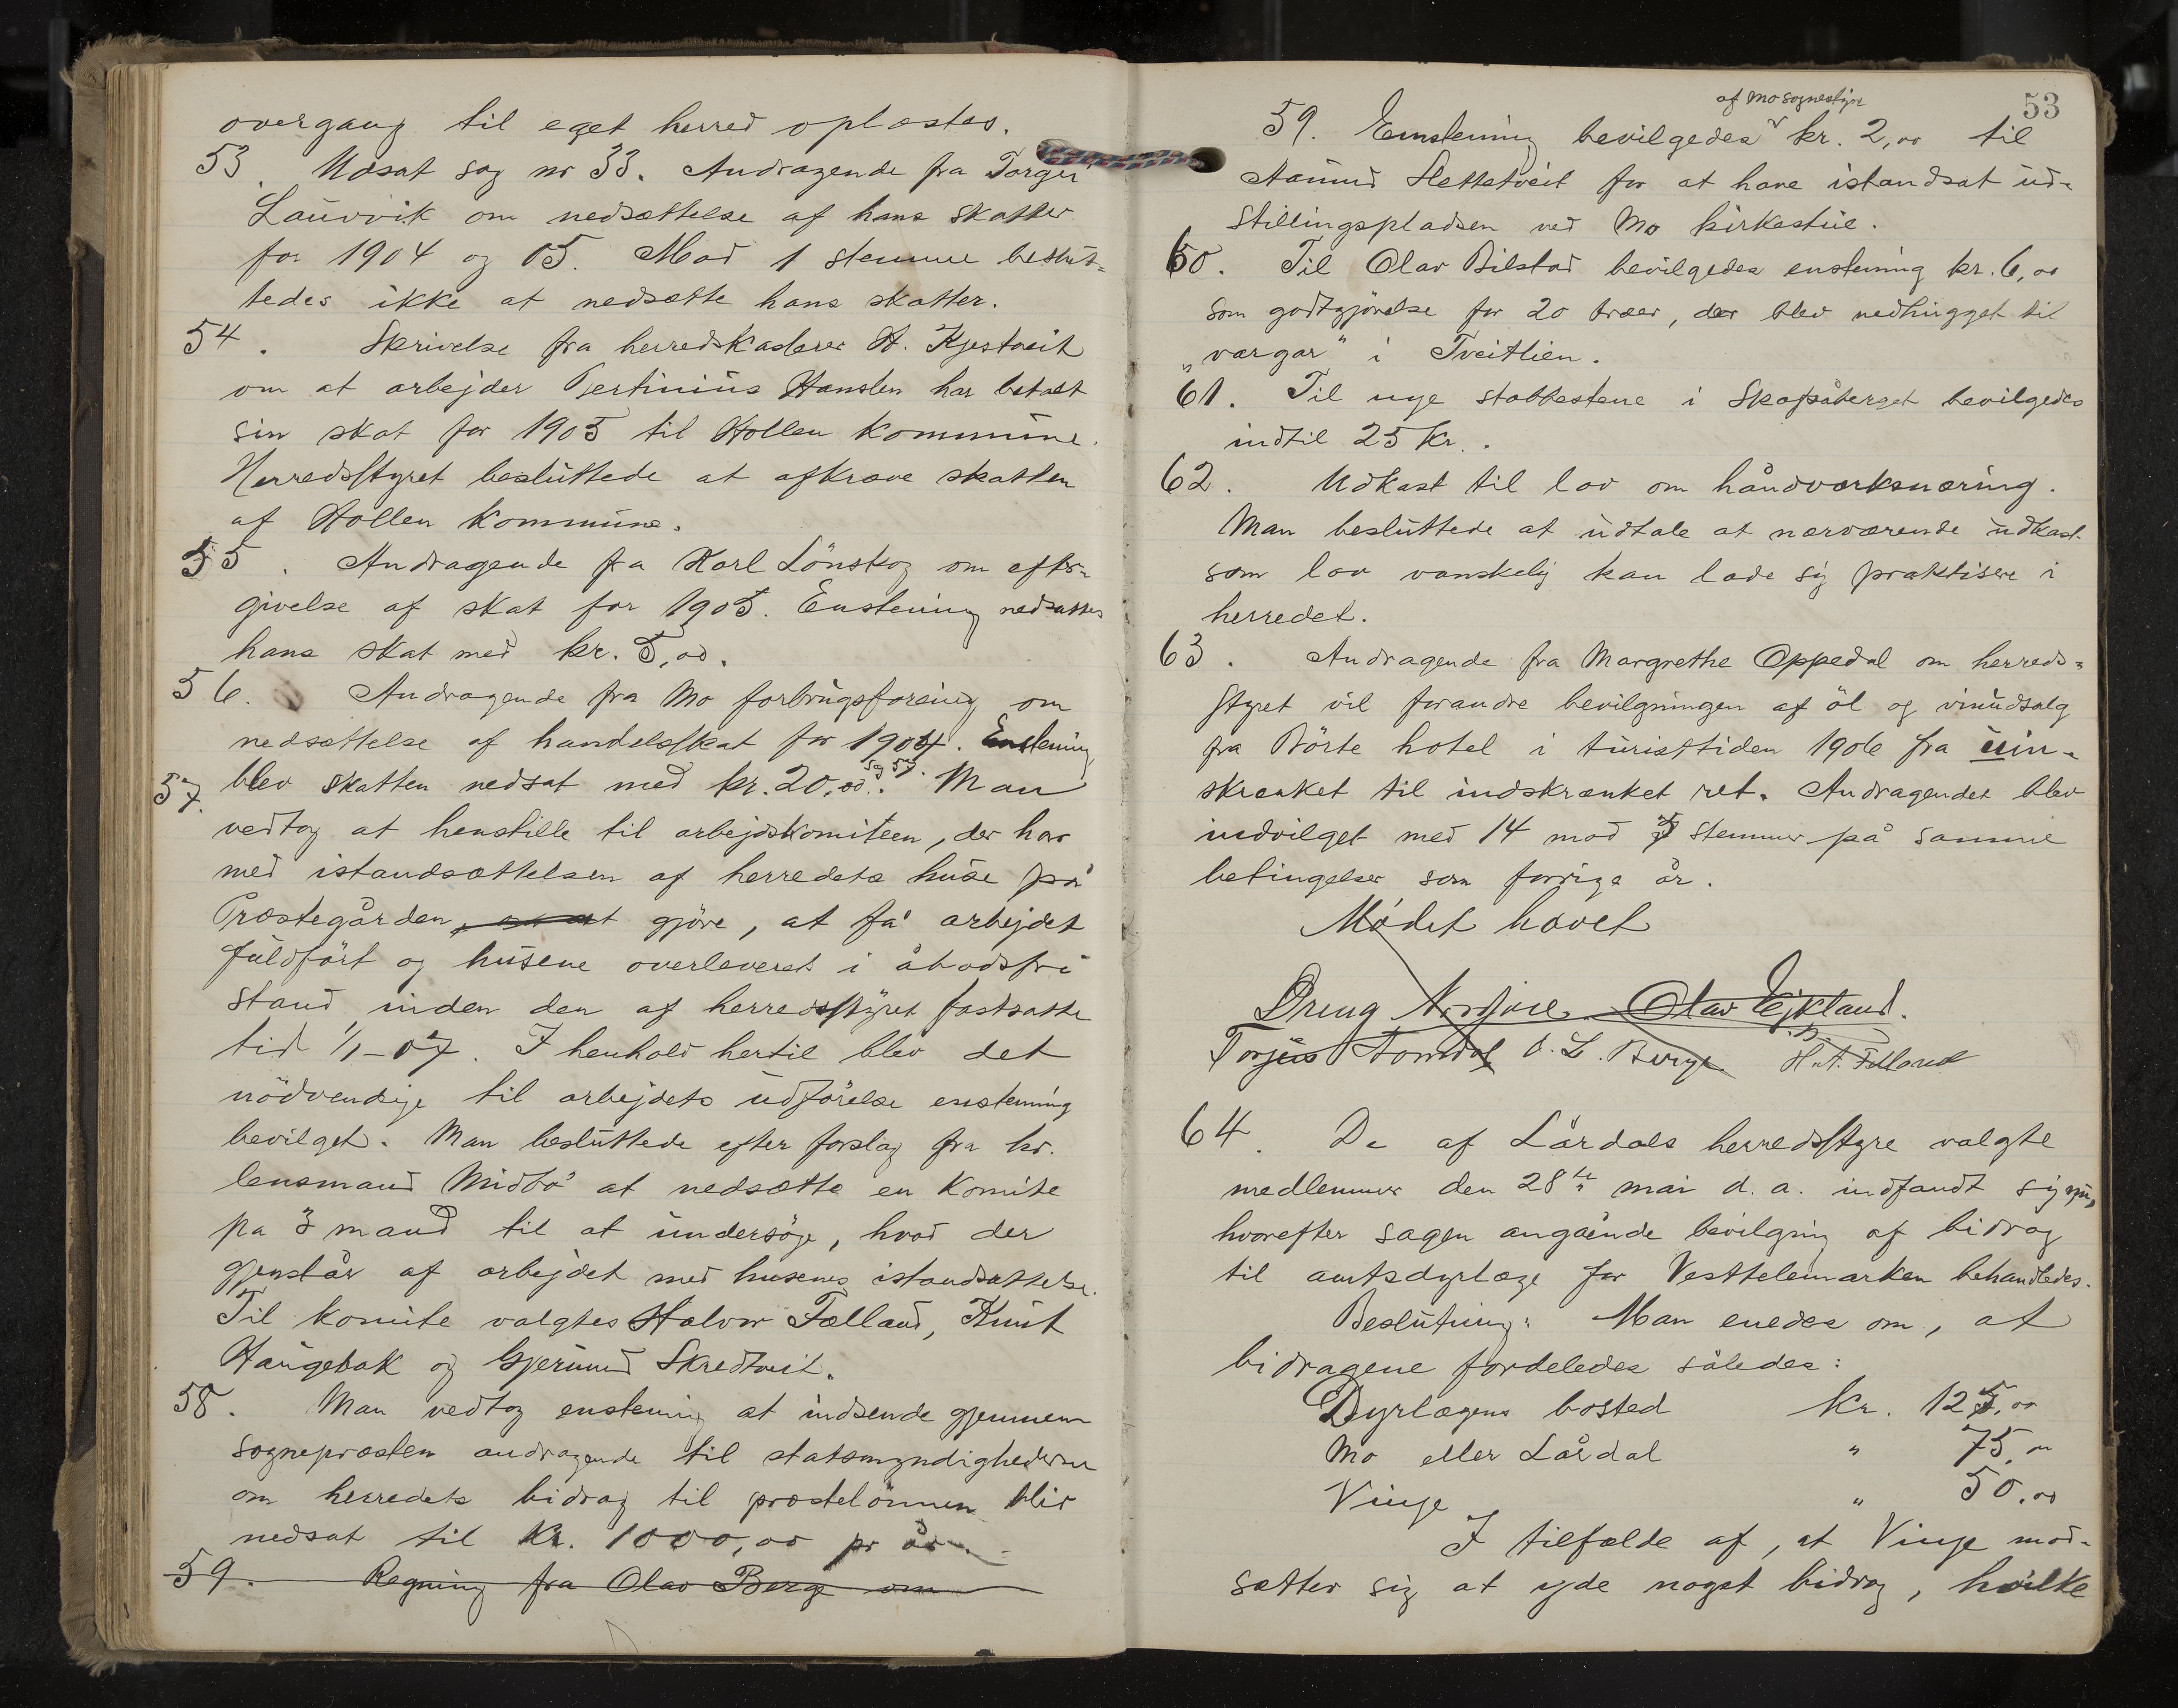 overgang til eget herred oplæstes.
53. Udsat sag nr 33. Andragende fra Torgei
Lauvvik om nedsættelse af hans skatter
for 1904 og 05. Mod 1 stemme beslut-
tedes ikke at nedsætte hans skatter.
54. Skrivelse fra herredskasserer H. Kjestveit
om at arbejder Hanslen har betalt
sin skat for 1905 til Hollen kommune.
Herredsstyret besluttede at afkræve skatten
af Hollen kommune.
55. Andragende fra Karl Lönskog om efter-
givelse af skat for 1905. Enstemig nedsattes
hans skat med kr. 5,00.
56. Andragende fra Mo forbrugsforening om
nedsættelse af handelsskat for 1904. Enstemig
blev skatten nedsat med kr. 20,00. Sag 57. Man
57. vedtog at henstille til arbejdskomiteen, der har
med istandsættelsen af herredets huse på
Præstegården, at gjöre, at få arbejdet
fuldfört og husene overleveret i åbodsfri
stand inden den af herredsstyret fastsatte
tid 1/1-07. I henhold hertil blev det
nödvendige til arbejdets udförelse enstemig
bevilget. Man besluttede efter forslag fra hr.
lensmand Midbö at nedsætte en komite
på 3 mand til at undersöge, hvad der
gjenstår af arbejdet med husenes istandsættelse.
Til komite valgtes Halvor Fælland, Knut
Haugebak og Gjermund Skredtveit.
58. Man vedtog enstemig at indsende gjennem
sognepræsten andragende til statsmyndighederne
om herredets bidrag til præstelönnen blir
nedsat til kr. 1000,00 pr år.
59. Regning fra Olav Berg om
53
af Mo sognestyre
59. Enstemig bevilgedes kr. 2,00 til
Aamund Slettetveit for at have istandsat ud-
stillingspladsen ved Mo kirkestue.
60. Til Olav Bilstad bevilgedes enstemig kr. 6,00
som godtgjörelse for 20 træer, der blev nedhugget til
"vargar" i Tveitlien.
61. Til nye stabbestene i bevilgedes
indtil 25 kr.
62. Udkast til lov om håndværksnæring.
Man besluttede at udtale at nærværende udkast
som lov vanskelig kan lade sig praktisere i
herredet.
63. Andragende fra Margrethe Oppedal om herreds-
styret vil forandre bevilgningen af öl og vinudsalg
fra Börte hotel i turisttiden 1906 fra uin-
skrænket til indskrænket ret. Andragendet blev
indvilget med 14 mod stemmer på samme
betingelser som forrige år.
Mödet hævet
Dreng Olav Eikland.
Torjus O. L. Berge H. A. Felland
64. De af Lårdals herredsstyre valgte
medlemmer den 28de mai d. a. indfandt sig nu,
hvorefter sagen angående bevilgning af bidrag
til amtsdyrlæge for Vesttelemarken behandledes.
Beslutning: Man enedes om, at
bidragene fordeledes således:
Dyrlægens bosted kr. 125,00
Mo eller Lårdal " 75,00
Vinje " 50,00
I tilfælde af, at Vinje mod-
sætter sig at yde noget bidrag, hvilke